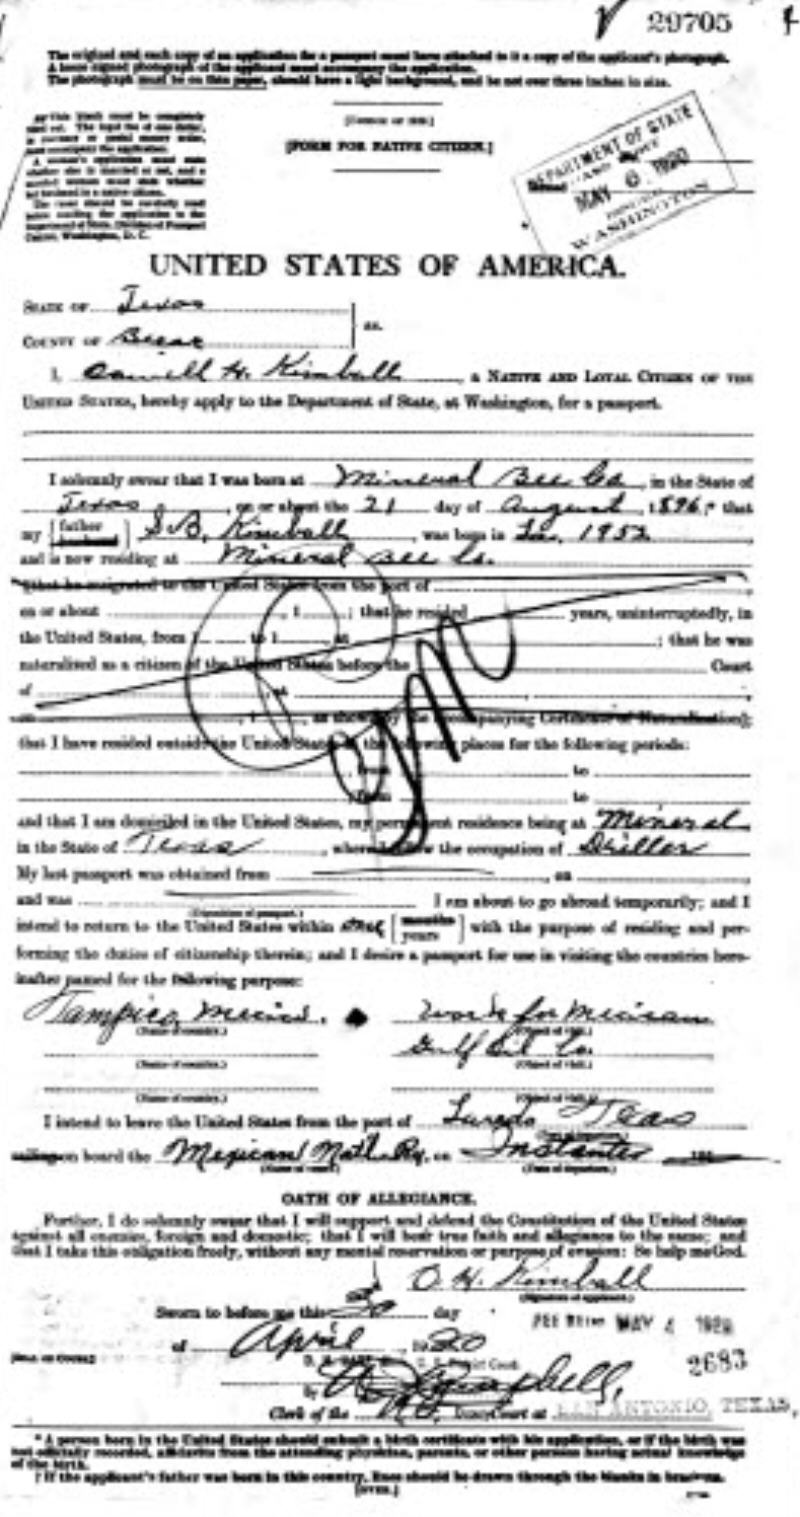 29705
The original and each copy of an application for a passport must have attached to it a copy of the applicant's photograph.
A loose signed photograph of the applicant must accompany the application.
The photograph must be on thin paper, should have a light background, and be not over three inches in size.
[FORM FOR NATIVE CITIZEN.]
DEPARTMENT OF STATE
MAY 6 1920
WASHINGTON
UNITED STATES OF AMERICA.
STATE OF Texas
COUNTY OF
ss.
I, H. Kimball, a NATIVE AND LOYAL CITIZEN OF THE
UNITED STATES, hereby apply to the Department of State, at Washington, for a passport.
I solemnly swear that I was born at Mineral Bee Co, in the State of
Texas, on or about the 21 day of August, 1896,* that
my [father husband] S.B. Kimball, was born in La, 1952
and is now residing at Mineral Bee Co.
(that he emigrated to the United States from the port of
on or about , 1 ; that he resided years, uninterruptedly, in
the United States, from 1 to 1 , at ; that he was
naturalized as a citizen of the United States before the Court
of , at
on , 1 , as shown by the accompanying Certificate of Naturalization);
that I have resided outside the United States at the following places for the following periods:
from to
from to
and that I am domiciled in the United States, my permanent residence being at Mineral
in the State of Texas, where I follow the occupation of Driller
My last passport was obtained from , on
and was I am about to go abroad temporarily; and I
(Disposition of passport.)
intend to return to the United States within one [months years] with the purpose of residing and per-
forming the duties of citizenship therein; and I desire a passport for use in visiting the countries here-
inafter named for the following purpose:
Tampico Mexico. Work for Mexican
(Name of country.) (Object of visit.)
Gulf Oil Co.
(Name of country.) (Object of visit.)
(Name of country.) (Object of visit.)
I intend to leave the United States from the port of Laredo Texas
sailing on board the Mexican Natl. Ry. on Instanter 191
(Name of vessel.) (Date of departure.)
OATH OF ALLEGIANCE.
Further, I do solemnly swear that I will support and defend the Constitution of the United States
against all enemies, foreign and domestic; that I will bear true faith and allegiance to the same; and
that I take this obligation freely, without any mental reservation or purpose of evasion: So help me God.
O.H. Kimball
(Signature of applicant.)
Sworn to before me this 30 day
MAY 4 1920
of April, 1920
2683
[SEAL OF COURT.]
by Campbell,
Clerk of the Court at SAN ANTONIO, TEXAS,
* A person born in the United States should submit a birth certificate with his application, or if the birth was
not officially recorded, affidavits from the attending physician, parents, or other persons having actual knowledge
of the birth.
† If the applicant's father was born in this country, lines should be drawn through the blanks in brackets.
[OVER.]